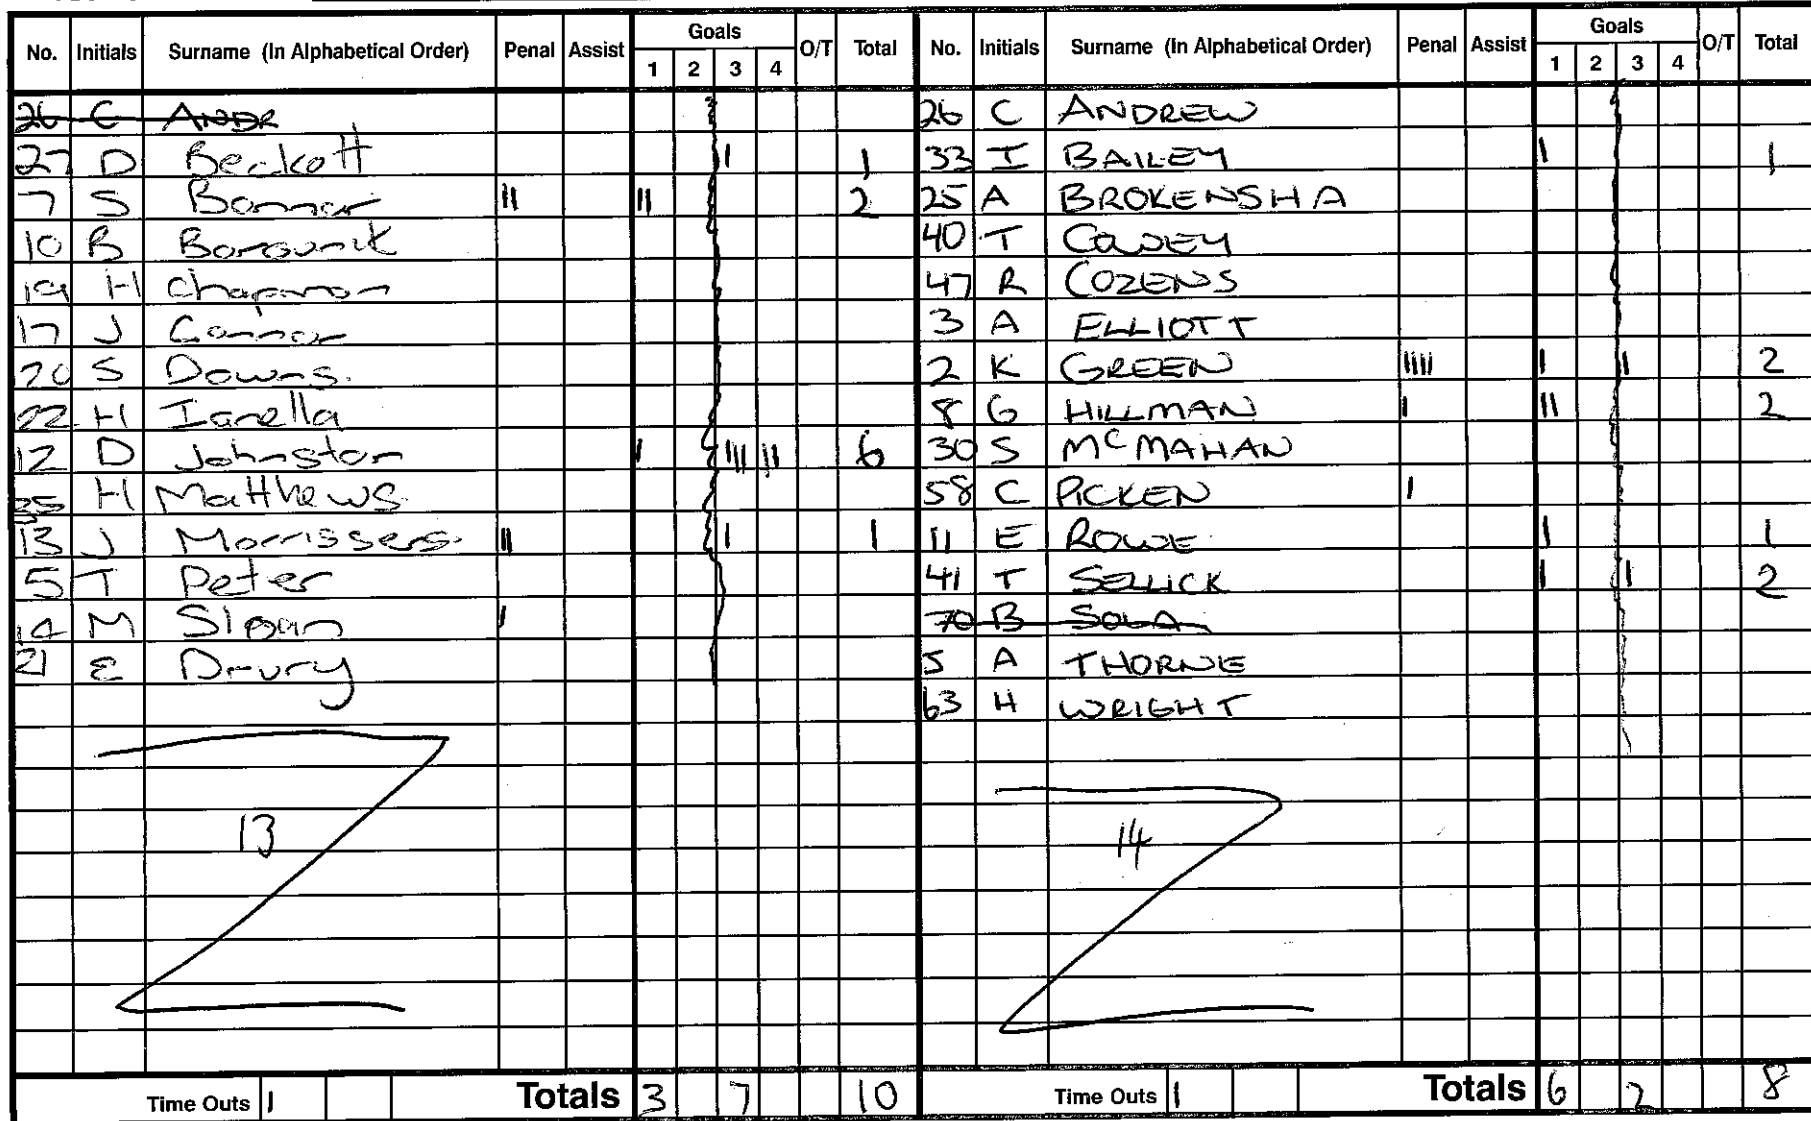 No. Initials Surname (In Alphabetical Order) Penal Assist Goals 1 2 3 4 O/T Total
26 C ANDR
27 D Beckett I 1
7 S Bonnar II II 2
10 B
19 H Chapman
17 J Connor
20 S Downs.
22 H Ianella
12 D Johnston I III II 6
35 H Matthews
13 J II I 1
5 T Peter
14 M Sloan I
21 E Drury
13
Time Outs 1 Totals 3 7 10
No. Initials Surname (In Alphabetical Order) Penal Assist Goals 1 2 3 4 O/T Total
26 C ANDREW
33 I BAILEY I 1
25 A BROKENSHA
40 T
47 R COZENS
3 A ELLIOTT
2 K GREEN IIII I I 2
8 G HILLMAN I II 2
30 S McMAHAN
58 C PICKEN I
11 E ROWE I 1
41 T SELLICK I I 2
70 B SOLA
5 A THORNE
63 H WRIGHT
14
Time Outs 1 Totals 6 2 8